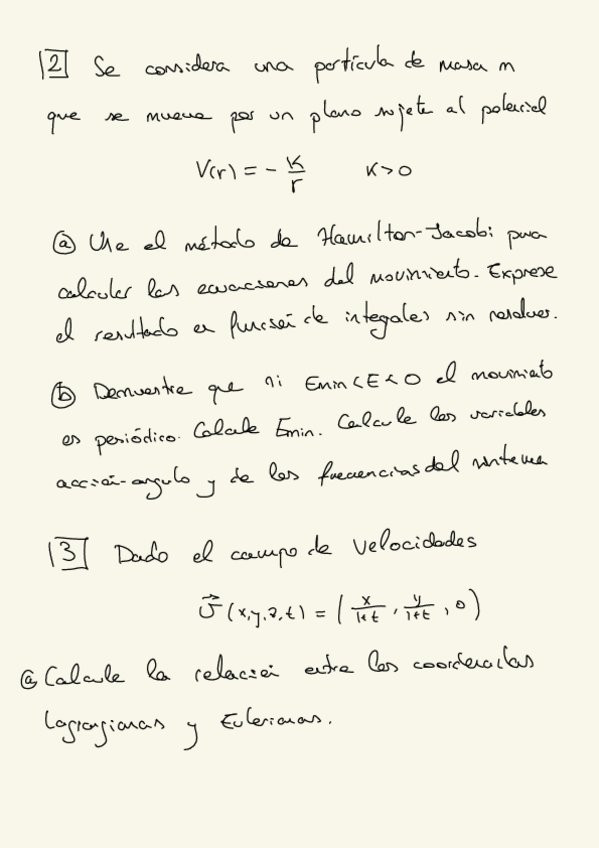 [2] Se considera una partícula de masa m
que se mueve por un plano sujeta al potencial
V(r) = - K/r    K>0
(a) Use el método de Hamilton-Jacobi para
calcular las ecuaciones del movimiento. Exprese
el resultado en función de integrales sin resolver.
(b) Demuestre que si Emin<E<0 el movimiento
es periódico. Calcule Emin. Calcule las variables
acción-angulo y de las frecuencias del sistema
[3] Dado el campo de velocidades
v⃗(x,y,z,t) = (x/1+t, y/1+t, 0)
(a) Calcule la relación entre las coordenadas
Lagrangianas y Eulerianas.